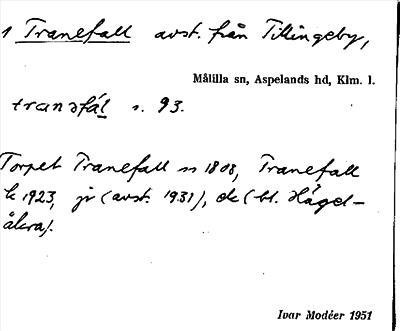 1 Tranefall avst. från Tillingeby,
Målilla sn, Aspelands hd, Klm. l.
tranəfál s. 93.
Torpet Tranefall ss 1808, Tranefall
k 1923, jr (avst. 1931), ek (bl. Hägel-
åkra).
Ivar Modéer 1951